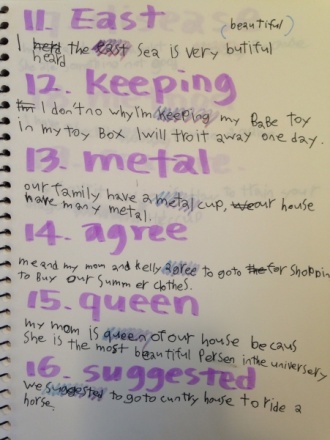 11. East
(beautiful)
I heard the east sea is very butiful
12. keeping
I don't no why I'm keeping my BaBe toy
in my toy Box I will troit away one day.
13. metal
our family have a metal cup, our house
have many metal.
14. agree
me and my mom and kelly agree to goto for shoppin
to Buy our summer clthes.
15. queen
my mom is queen of our house becaus
She is the most beautiful Persen in the universery
16. suggested
we suggested to goto cuntry house to ride a
horse.